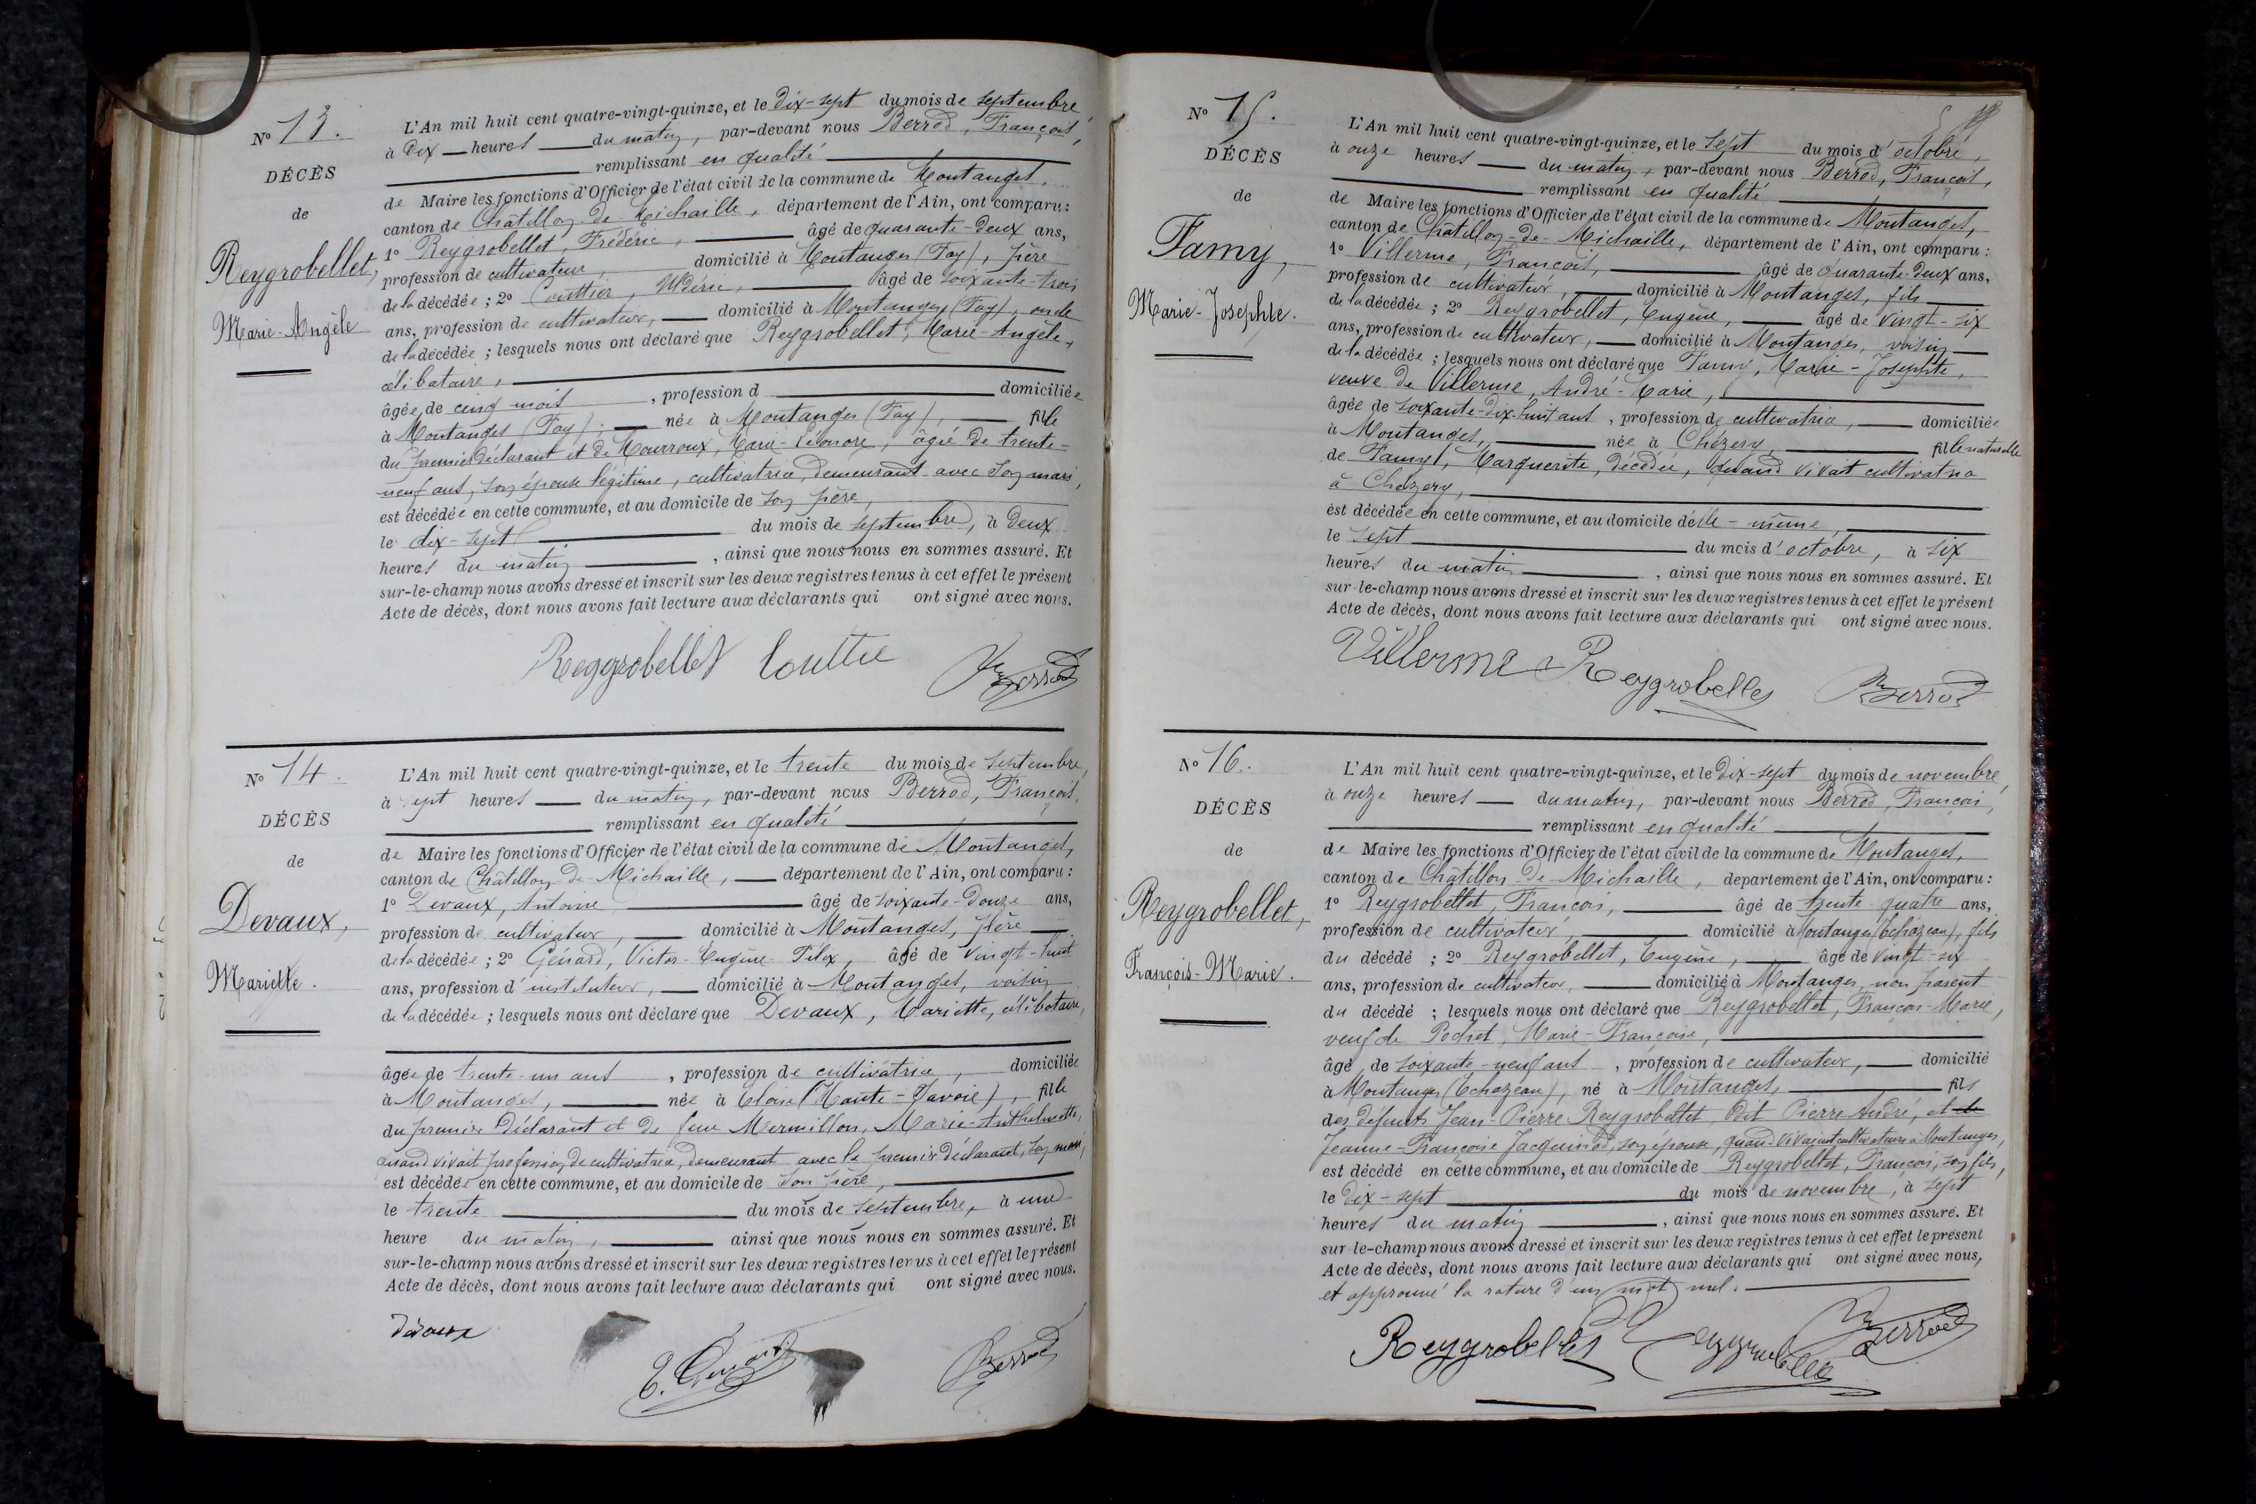 No 13.
DÉCÈS
de
Reygrobellet,
Marie-Angèle
L'An mil huit cent quatre-vingt-quinze, et le dix-sept du mois de septembre,
à dix heures du matin, par-devant nous Berrod, François,
remplissant en qualité
de Maire les fonctions d'Officier de l'état civil de la commune de Montanges,
canton de Châtillon-de-Michaille, département de l'Ain, ont comparu :
1° Reygrobellet, Frédéric, âgé de quarante-deux ans,
profession de cultivateur, domicilié à Montanges (Fay), père
de la décédée ; 2° Couttier, âgé de soixante-trois
ans, profession de cultivateur, domicilié à Montanges (Fay), oncle
de la décédée ; lesquels nous ont déclaré que Reygrobellet, Marie-Angèle,
célibataire,
âgée de cinq mois, profession d domiciliée
à Montanges (Fay), née à Montanges (Fay), fille
du premier déclarant et de Mourroux, Marie-Léonore, âgée de trente-
neuf ans, son épouse légitime, cultivatrice, demeurant avec son mari,
est décédée en cette commune, et au domicile de son père,
le dix-sept du mois de septembre, à deux
heures du matin, ainsi que nous nous en sommes assuré. Et
sur-le-champ nous avons dressé et inscrit sur les deux registres tenus à cet effet le présent
Acte de décès, dont nous avons fait lecture aux déclarants qui ont signé avec nous.
Reygrobellet Couttie Berrod
No 14.
DÉCÈS
de
Devaux,
Mariette.
L'An mil huit cent quatre-vingt-quinze, et le trente du mois de septembre,
à sept heures du matin, par-devant nous Berrod, François,
remplissant en qualité
de Maire les fonctions d'Officier de l'état civil de la commune de Montanges,
canton de Châtillon-de-Michaille, département de l'Ain, ont comparu :
1° Devaux, Antoine, âgé de soixante-douze ans,
profession de cultivateur, domicilié à Montanges, père
de la décédée ; 2° Génard, Victor-Eugène-Félix, âgé de vingt-huit
ans, profession d'instituteur, domicilié à Montanges, voisin
de la décédée ; lesquels nous ont déclaré que Devaux, Mariette, célibataire,
âgée de trente-un ans, profession de cultivatrice, domiciliée
à Montanges, née à Eloise (Haute-Savoie), fille
du premier déclarant et de feue Mermillon, Marie-Anthelmette,
quand vivait profession de cultivatrice, demeurant avec le premier déclarant, son mari,
est décédée en cette commune, et au domicile de son père,
le trente du mois de septembre, à une
heure du matin, ainsi que nous nous en sommes assuré. Et
sur-le-champ nous avons dressé et inscrit sur les deux registres tenus à cet effet le présent
Acte de décès, dont nous avons fait lecture aux déclarants qui ont signé avec nous.
devaux
Berrod
No 15.
DÉCÈS
de
Famy,
Marie-Josephte.
L'An mil huit cent quatre-vingt-quinze, et le sept du mois d'octobre,
à onze heures du matin, par-devant nous Berrod, François,
remplissant en qualité
de Maire les fonctions d'Officier de l'état civil de la commune de Montanges,
canton de Châtillon-de-Michaille, département de l'Ain, ont comparu :
1° Villerme, François, âgé de quarante-deux ans,
profession de cultivateur, domicilié à Montanges, fils
de la décédée ; 2° Reygrobellet, Eugène, âgé de vingt-six
ans, profession de cultivateur, domicilié à Montanges, voisin
de la décédée ; lesquels nous ont déclaré que Famy, Marie-Josephte,
veuve de Villerme, André-Marie,
âgée de soixante-dix-huit ans, profession de cultivatrice, domiciliée
à Montanges, née à Chézery, fille naturelle
de Famy, Marguerite, décédée, quand vivait cultivatrice
à Chézery,
est décédée en cette commune, et au domicile d'elle-même,
le sept du mois d'octobre, à six
heures du matin, ainsi que nous nous en sommes assuré. Et
sur-le-champ nous avons dressé et inscrit sur les deux registres tenus à cet effet le présent
Acte de décès, dont nous avons fait lecture aux déclarants qui ont signé avec nous.
Villerme Reygrobellet Berrod
No 16.
DÉCÈS
de
Reygrobellet,
François-Marie.
L'An mil huit cent quatre-vingt-quinze, et le dix-sept du mois de novembre,
à onze heures du matin, par-devant nous Berrod, François,
remplissant en qualité
de Maire les fonctions d'Officier de l'état civil de la commune de Montanges,
canton de Châtillon-de-Michaille, département de l'Ain, ont comparu :
1° Reygrobellet, François, âgé de trente-quatre ans,
profession de cultivateur, domicilié à Montanges (Échazeau), fils
du décédé ; 2° Reygrobellet, Eugène, âgé de vingt-six
ans, profession de cultivateur, domicilié à Montanges, non parent
du décédé ; lesquels nous ont déclaré que Reygrobellet, François-Marie,
veuf de Pochet, Marie-Françoise,
âgé de soixante-neuf ans, profession de cultivateur, domicilié
à Montanges (Échazeau), né à Montanges, fils
des défunts Jean-Pierre Reygrobellet, dit Pierre André, et de
Jeanne-Françoise Jacquinod, son épouse, quand vivaient cultivateurs à Montanges,
est décédé en cette commune, et au domicile de Reygrobellet, François, son fils,
le dix-sept du mois de novembre, à sept
heures du matin, ainsi que nous nous en sommes assuré. Et
sur-le-champ nous avons dressé et inscrit sur les deux registres tenus à cet effet le présent
Acte de décès, dont nous avons fait lecture aux déclarants qui ont signé avec nous,
et approuvé la rature d'un mot nul.
Reygrobellet Reygrobellet Berrod